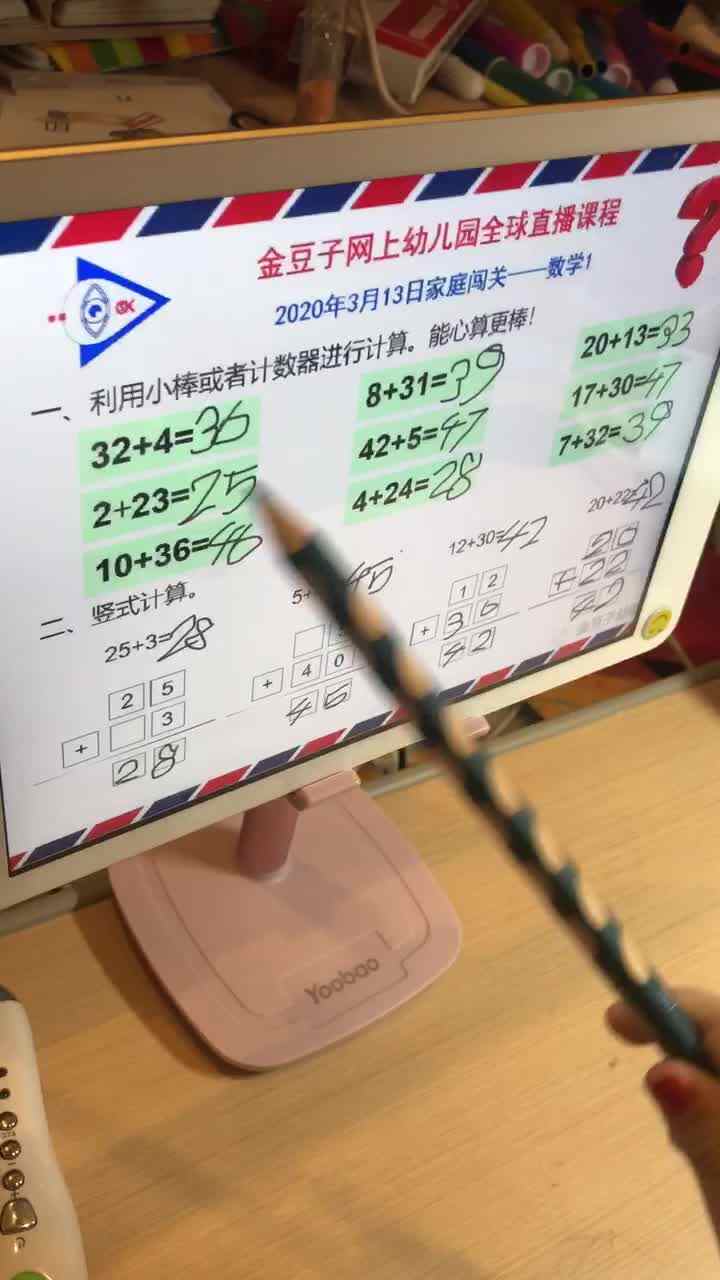 金豆子网上幼儿园全球直播课程
2020年3月13日家庭闯关——数学1
一、利用小棒或者计数器进行计算。能心算更棒！
32+4=36 8+31=39 20+13=33
2+23=25 42+5=47 17+30=47
10+36=46 4+24=28 7+32=39
二、竖式计算。
25+3=28 5+ 45 12+30=42 20+22=42
2 5 1 2 20
+ 3 + 4 0 + 3 0 +22
28 45 42 42
Yoobao